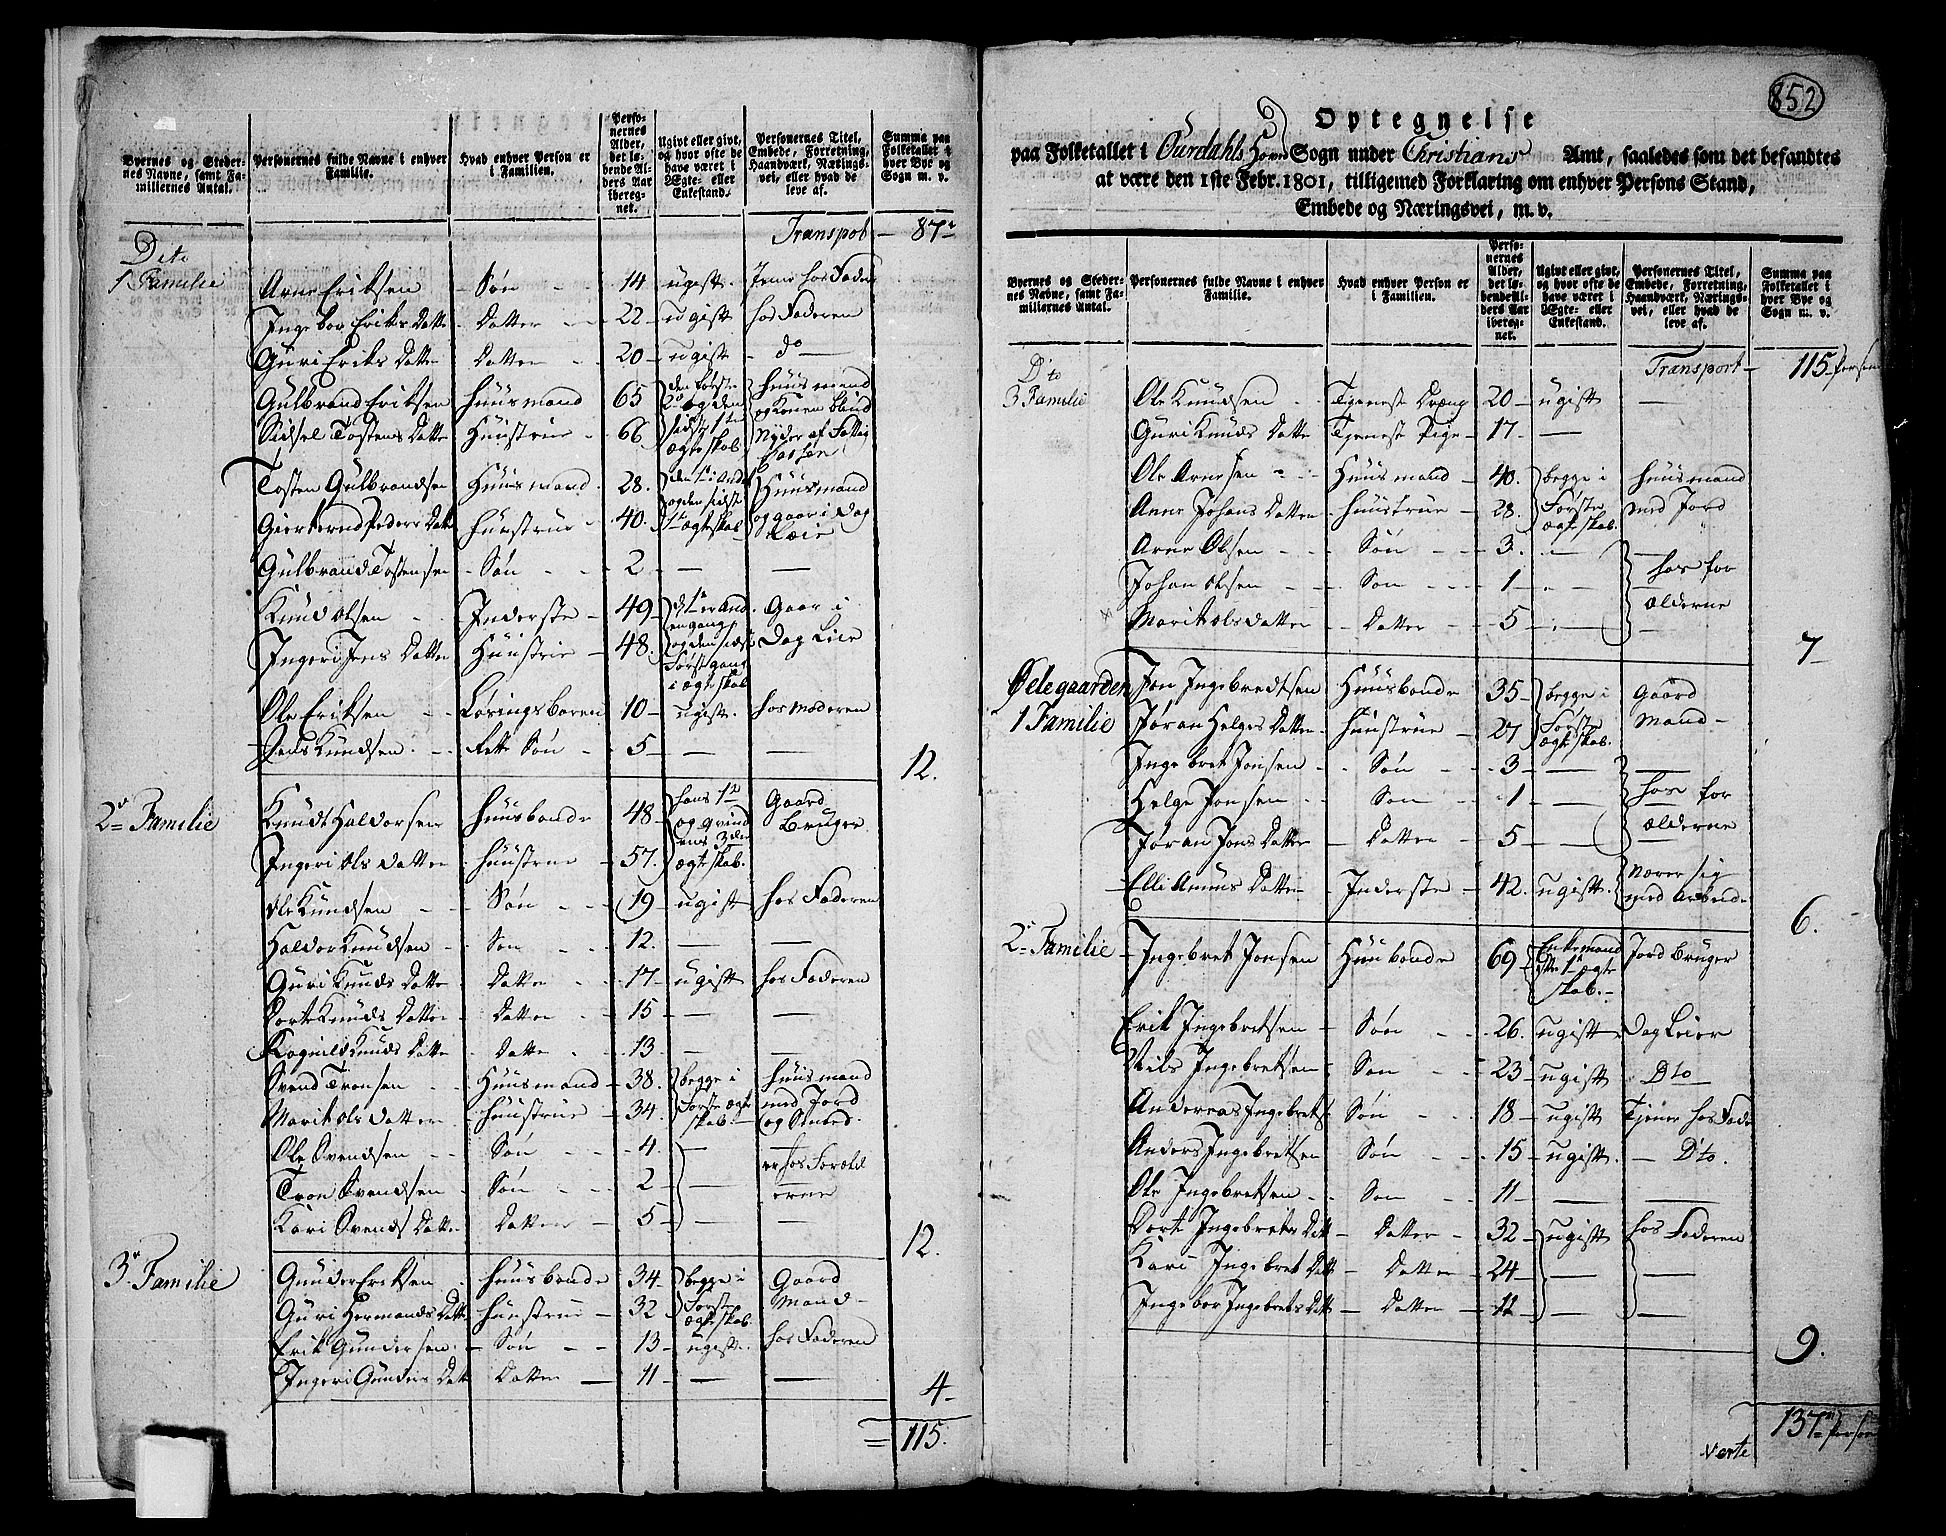 Byernes og Steder-
nes Navne, samt Fa-
miliernes Antal.
Personernes fulde Navne i enhver
Familie.
Hvad enhver Person er
i Familien.
Perso-
nernes
Alder,
det lø-
bende Al-
ders Aar
iberegn-
net.
Ugivt eller givt,
og hvor ofte de
have været i
Ægte- eller
Enkestand.
Personernes Titel,
Embede, Forretning,
Haandværk, Nærings-
vei, eller hvad de
leve af.
Summa paa
Folketallet i
hver Bye og
Sogn m. v.
Transport — 87
Dito
1 Familie
Arne Eriksen - Søn - 14 - ugivt hos Fader
Ingebor Eriks Datter - Datter - 22 - ugivt hos Faderen
Guri Eriks Datter Datter - 20 - ugivt - do
Gulbrand Eriksen Huusmand 65 den første 2den og den sidste 1te ægteskab Huusmand og Konen blind Nyder af Fattig Cassen
Sidsel Tostens Datter Huustrue - 66.
Tosten Gulbrandsen Huusmand 28. den 1te i Ande og den sidst 1te ægteskab Huusmand og gaar i Dag Leie
Giertrud Peders Datter Huustrue - 40.
Gulbrand Tostensen - Søn - 2 — —
Knud Olsen - Inderste - 49 Gaar i Dag Leie
Ingeri Jens Datter Huustrue - 48. og den sidste Første gang i ægteskab
Ole Eriksen - 10 - ugivt. hos Moderen
Jens Knudsen - Ægte Søn - 5 — — —
12.
2den Familie
Knudt Haldorsen Huusbonde 48 Gaard Bruger
Ingeri Ols Datter Huustrue - 57. ægteskab.
Ole Knudsen - Søn - 19 ugivt hos Faderen
Haldor Knudsen - Søn - 12. — —
Guri Knuds Datter - Datter - 17 - ugivt hos Faderen
Dorte Knuds Datter - Datter - 15 — —
Ragnild Knuds Datter - Datter - 13 — —
Svend Tronsen - Huusmand - 38. begge i Første ægteskab Huusmand med Jord
Marit Ols Datter - Huustrue - 34.
Ole Svendsen - Søn - 4. — er hos Forældrene
Tron Svendsen - Søn - 2 —
Kari Svends Datter - Datter - 5 — —
12.
3de Familie
Gunder Eriksen - Huusbonde - 34 begge i Første ægteskab Gaard Mand
Guri Hermands Datter Huustrue - 32
Erik Gundersen. - Søn - 13 - ugivt. hos Faderen
Ingeri Gunders Datter Datter — 11 — — —
4
= 115.
852
Optegnelse
paa Folketallet i Ourdahls Hoved Sogn under Christians Amt, saaledes som det befandtes
at være den 1ste Febr. 1801, tilligemed Forklaring om enhver Persons Stand,
Embede og Næringsvei, m. v.
Byernes og Steder-
nes Navne, samt Fa-
miliernes Antal.
Personernes fulde Navne i enhver
Familie.
Hvad enhver Person er
i Familien.
Perso-
nernes
Alder,
det lø-
bende Al-
ders Aar
iberegn-
net.
Ugivt eller givt,
og hvor ofte de
have været i
Ægte- eller
Enkestand.
Personernes Titel,
Embede, Forretning,
Haandværk, Nærings-
vei, eller hvad de
leve af.
Summa paa
Folketallet i
hver Bye og
Sogn m. v.
Transport — 115 Person
Dito
3 Familie
Ole Knudsen - Tjeneste Dreng 20 - ugivt —
Guri Knuds Datter Tjeneste Pige - 17. —
Ole Arnesen - Huusmand - 40. begge i Første ægteskab. Huusmand med Jord
Anne Johans Datter - Huustrue - 28.
Arne Olsen - Søn - 3. — hos For
Johan Olsen - Søn - 1 ælderne
Marit Olsdatter - Datter - 5 —
7
Ødegaarden
1 Familie
Jon Ingebredtsen Huusbonde 35 begge i Første ægteskab. Gaard Mand
Jøran Helges Datter - Huustrue - 27
Ingebret Jonsen - Søn - 3 — —
Helge Jonsen - Søn - 1 — hos For ælderne
Jøran Jons Datter - Datter - 5 — —
Elli Amuns Datter - Inderste - 42. ugivt. Nærer sig med Arbeide
6.
2den Familie
Ingebret Jonsen Huusbonde 69 Enkemand efter 1te ægteskab. Jord Bruger
Erik Ingebretsen - Søn - 26. ugivt Dag Leier
Nils Ingebretsen - Søn - 23 - ugivt Dto
Anderas Ingebrets Søn - 18 - ugivt Tjener hos Fader
Anders Ingebretsen Søn - 15 - ugivt. — Dto.
Ole Ingebretsen - Søn - 11 — —
Dorte Ingebrets Datt - Datter - 32 ugivt hos Faderen
Kari Ingebret Datt - Datter - 24 — —
Ingebor Ingebrets Datt — Datter - 12 — —
9.
137 Person
Verte